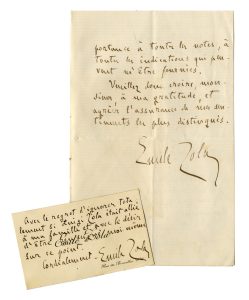 portance à toutes les notes, à
toutes les indications qui peu-
vent m'être fournies.
Veuillez donc croire, mon-
sieur, à ma gratitude, et
agréer l'assurance de mes sen-
timents les plus distingués.
Emile Zola
Avec le regret d'ignorer tota-
lement si Luigi Zola était allié
à ma famille et avec le désir
d'être
sur ce point.
Cordialement. Emile Zola